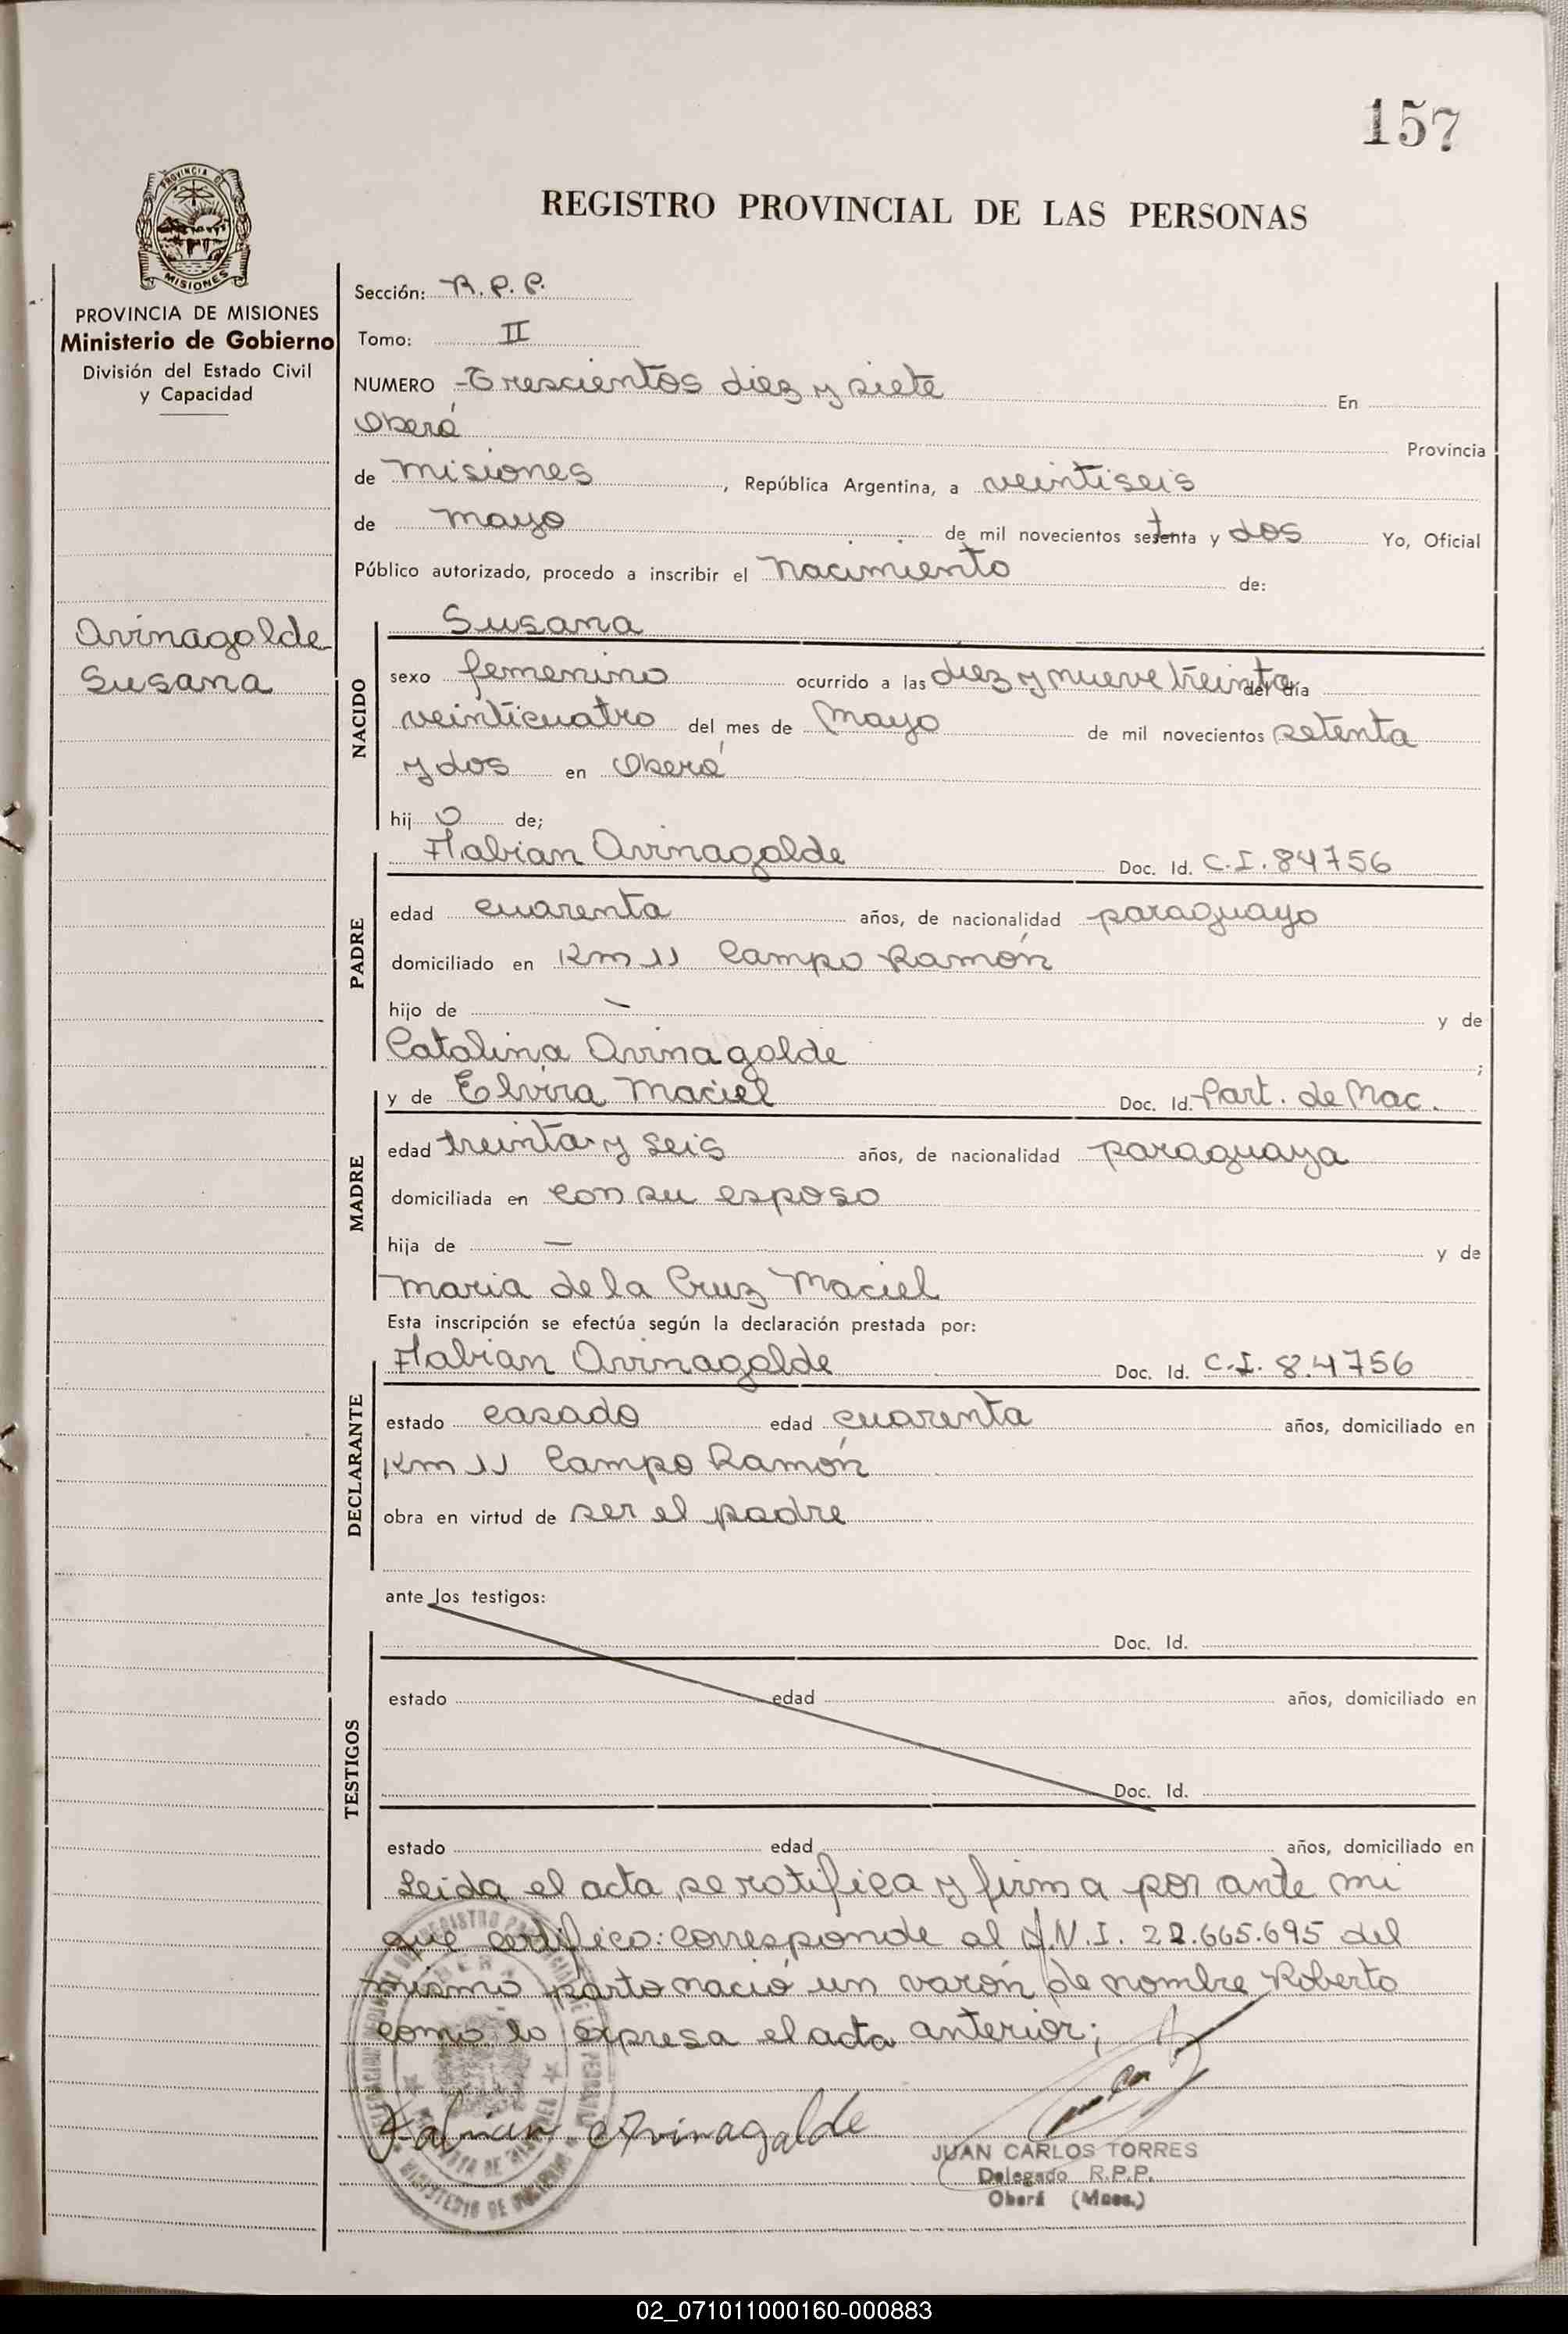 157
REGISTRO PROVINCIAL DE LAS PERSONAS
PROVINCIA DE MISIONES
Ministerio de Gobierno
División del Estado Civil
y Capacidad
Avinagalde
Susana
Sección: R.P.P.
Tomo: II
NUMERO -Trescientos diez y siete En
Oberá Provincia
de misiones, República Argentina, a veintiseis
de mayo de mil novecientos setenta y dos Yo, Oficial
Público autorizado, procedo a inscribir el nacimiento de:
Susana
NACIDO
sexo femenino ocurrido a las diez y nueve treinta del día
veinticuatro del mes de Mayo de mil novecientos setenta
y dos en Oberá
hij a de;
PADRE
Fabian Avinagalde Doc. Id. C.I. 84756
edad cuarenta años, de nacionalidad paraguayo
domiciliado en Km 11 Campo Ramón
hijo de - y de
Catalina Avinagalde ;
MADRE
y de Elvira Maciel Doc. Id. Part. de Nac.
edad treinta y seis años, de nacionalidad paraguaya
domiciliada en con su esposo
hija de - y de
Maria de la Cruz Maciel
Esta inscripción se efectúa según la declaración prestada por:
DECLARANTE
Fabian Avinagalde Doc. Id. C.I. 84756
estado casado edad cuarenta años, domiciliado en
Km 11 Campo Ramón
obra en virtud de ser el padre
ante los testigos:
TESTIGOS
Doc. Id.
estado edad años, domiciliado en
Doc. Id.
estado edad años, domiciliado en
Leida el acta se ratifica y firma por ante mi
que certifico: corresponde al D.N.I. 22.665.695 del
mismo parto nació un varón de nombre Roberto
como lo expresa el acta anterior;
Fabian Avinagalde
JUAN CARLOS TORRES
Delegado R.P.P.
Oberá (Mnes.)
02_071011000160-000883